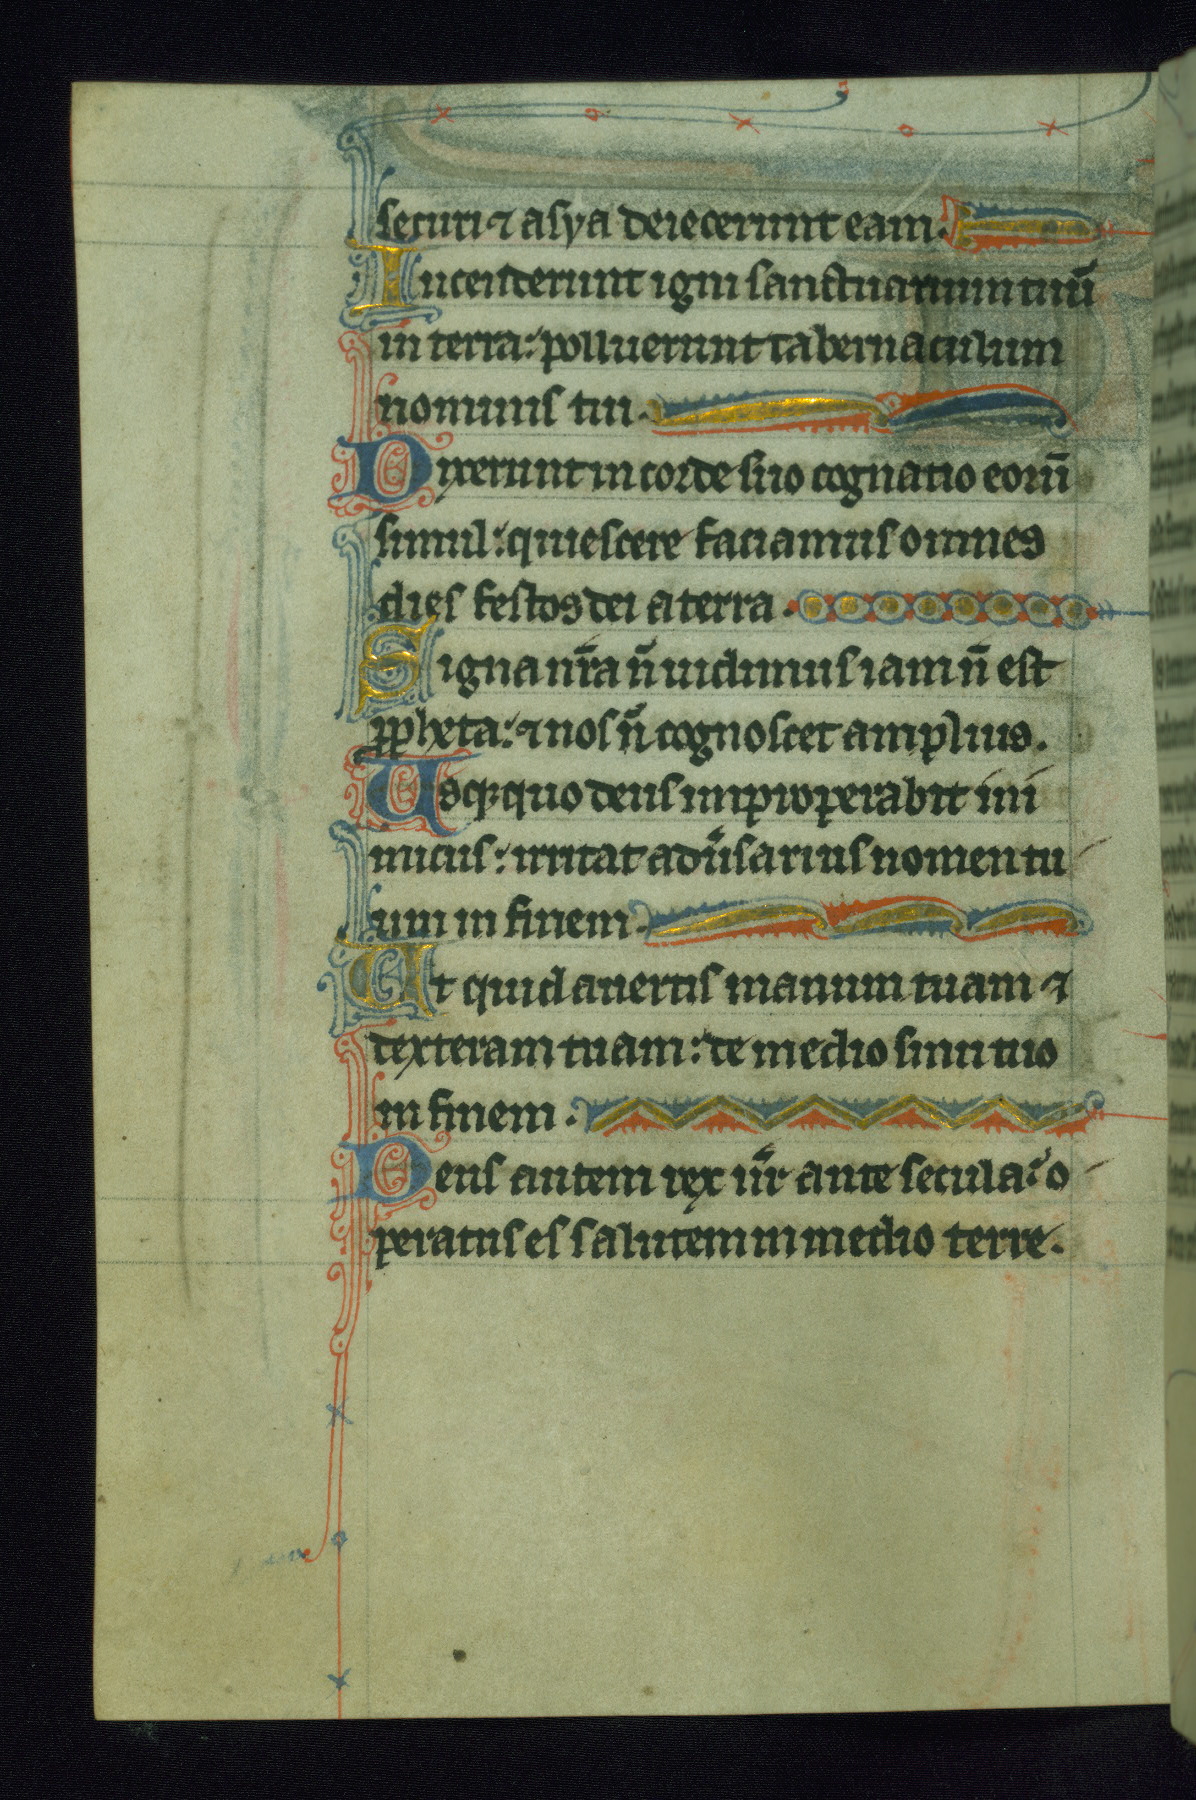 securi ⁊ asya deiecerunt eam.
Incenderunt igni sanctuarium tuū
in terra: polluerunt tabernaculum
nominis tui.
Dixerunt in corde suo cognatio eorū
simul: quiescere faciamus omnes
dies festos dei a terra.
Signa nr̄a n̄ uidimus iam n̄ est
ꝓpheta: ⁊ nos n̄ cognoscet amplius.
Usqꝫ quo deus improperabit ini
micus: irritat adu͛sarius nomen tu
um in finem.
Ut quid auertis manum tuam ⁊
dexteram tuam: de medio sinu tuo
in finem.
Deus autem rex nr̄ ante secula: o
peratus es salutem in medio terre.